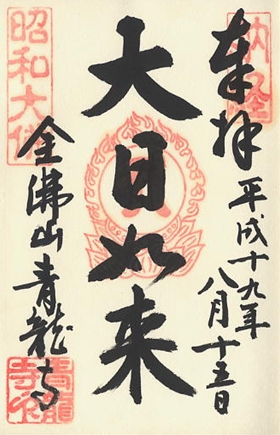 奉拝
平成十九年
八月十五日
納経
大日如来
昭和大佛
全佛山青龍寺
青龍寺印